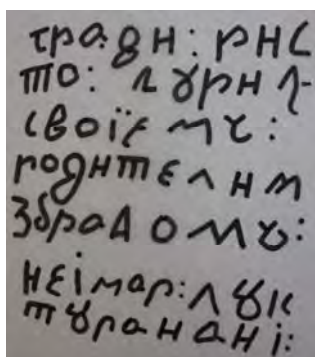 гради: рис
то: л ꙋри л-
своїє мꙋ:
родителим
Збрадомꙋ:
неімар: лꙋк
тꙋранані: